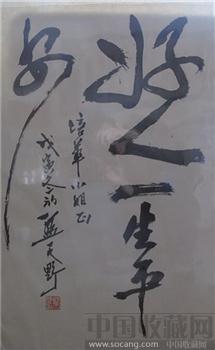 好人一生平
安
培華小姐正
戊寅冬 藍天野
中国收藏网
www.socang.com